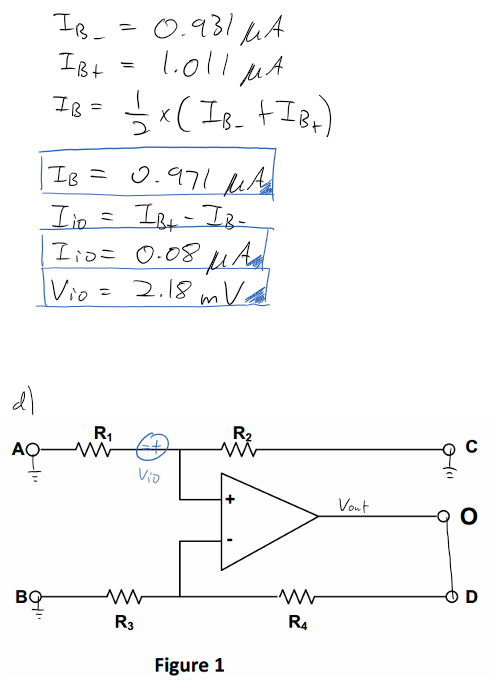 I_B- = 0.931 μA
I_B+ = 1.011 μA
I_B = 1/2 × (I_B- + I_B+)
I_B = 0.971 μA
I_io = I_B+ - I_B-
I_io = 0.08 μA
V_io = 2.18 mV
d)
R₁ R₂
A - + C
Vio
+ Vout
O
-
B D
R₃ R₄
Figure 1